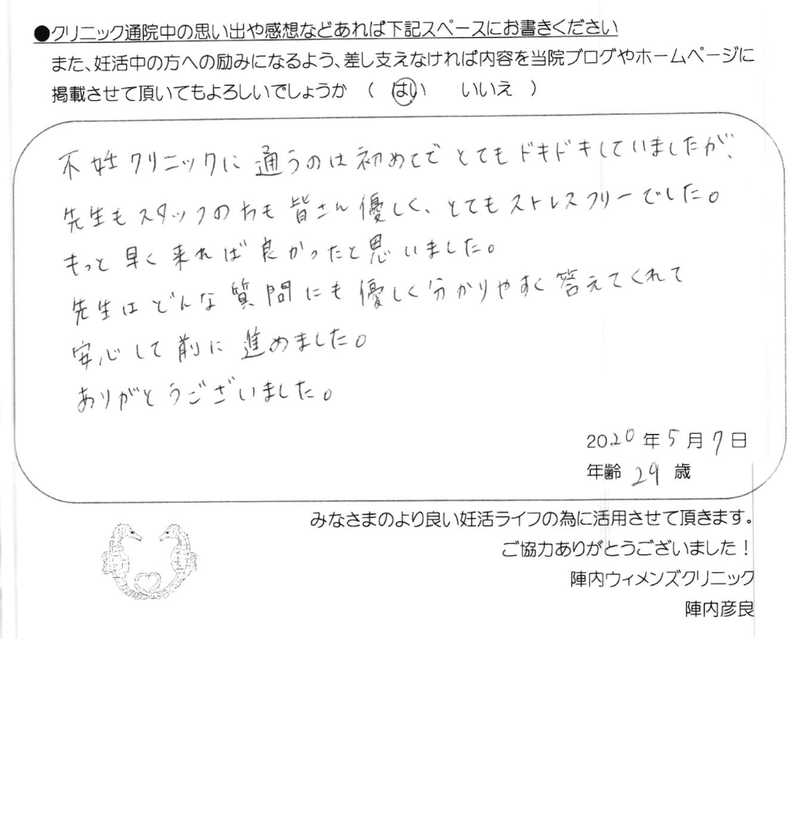 ●クリニック通院中の思い出や感想などあれば下記スペースにお書きください
また、妊活中の方への励みになるよう、差し支えなければ内容を当院ブログやホームページに
掲載させて頂いてもよろしいでしょうか （ はい いいえ ）
不妊クリニックに通うのは初めてでとてもドキドキしていましたが、
先生もスタッフの方も皆さん優しく、とてもストレスフリーでした。
もっと早く来れば良かったと思いました。
先生はどんな質問にも優しく分かりやすく答えてくれて
安心して前に進めました。
ありがとうございました。
2020年5月7日
年齢 29 歳
みなさまのより良い妊活ライフの為に活用させて頂きます。
ご協力ありがとうございました！
陣内ウィメンズクリニック
陣内彦良